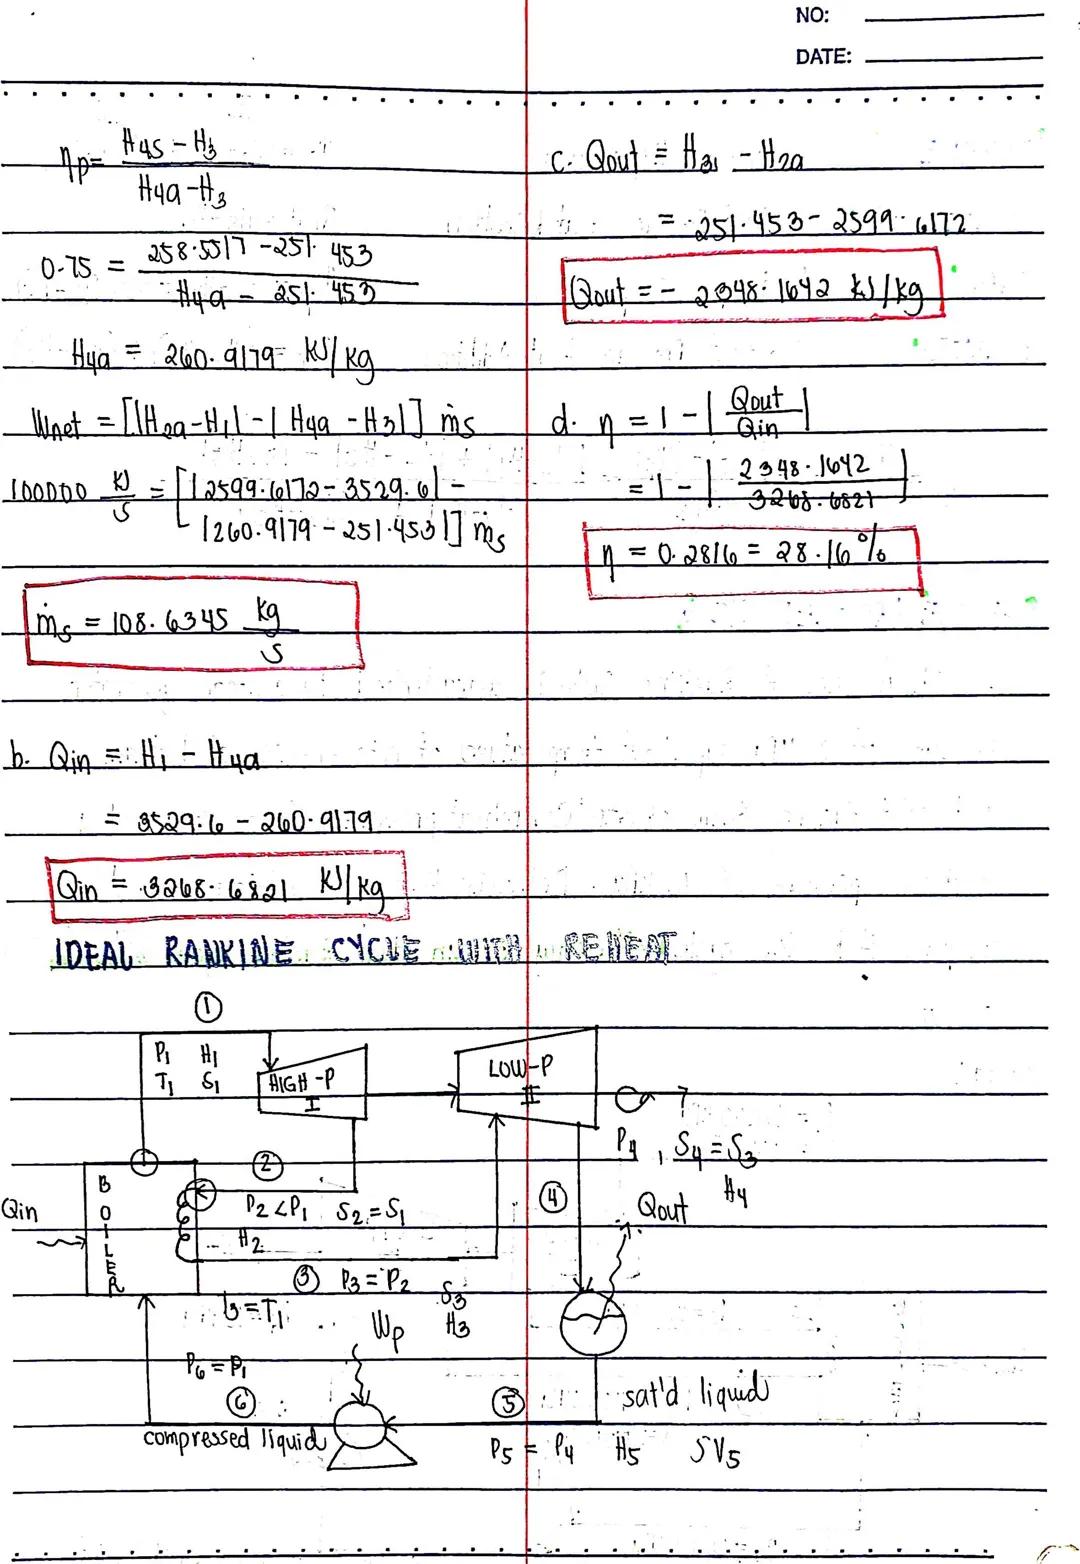 NO:
DATE:
ηp = H4s - H3 / H4a - H3
0.75 = 258.5517 - 251.453 / H4a - 251.453
H4a = 260.9179 kJ/kg
Wnet = [|H2a - H1| - |H4a - H3|] ṁs
100000 kJ/s = [|2599.6172 - 3529.6| -
|260.9179 - 251.453|] ṁs
ṁs = 108.6345 kg/s
b. Qin = H1 - H4a
= 3529.6 - 260.9179
Qin = 3268.6821 kJ/kg
c. Qout = H3 - H2a
= 251.453 - 2599.6172
Qout = - 2348.1642 kJ/kg
d. η = 1 - |Qout / Qin|
= 1 - |2348.1642 / 3268.6821|
η = 0.2816 = 28.16%
IDEAL RANKINE CYCLE WITH REHEAT
①
P1 H1
T1 S1
HIGH-P
I
LOW-P
II
P4, S4 = S3
H4
BOILER
Qin
②
P2 < P1 S2 = S1
H2
④
Qout
③ P3 = P2 S3
H3
= T1
Wp
P6 = P1
⑥
compressed liquid
⑤
sat'd liquid
P5 = P4 H5 SV5